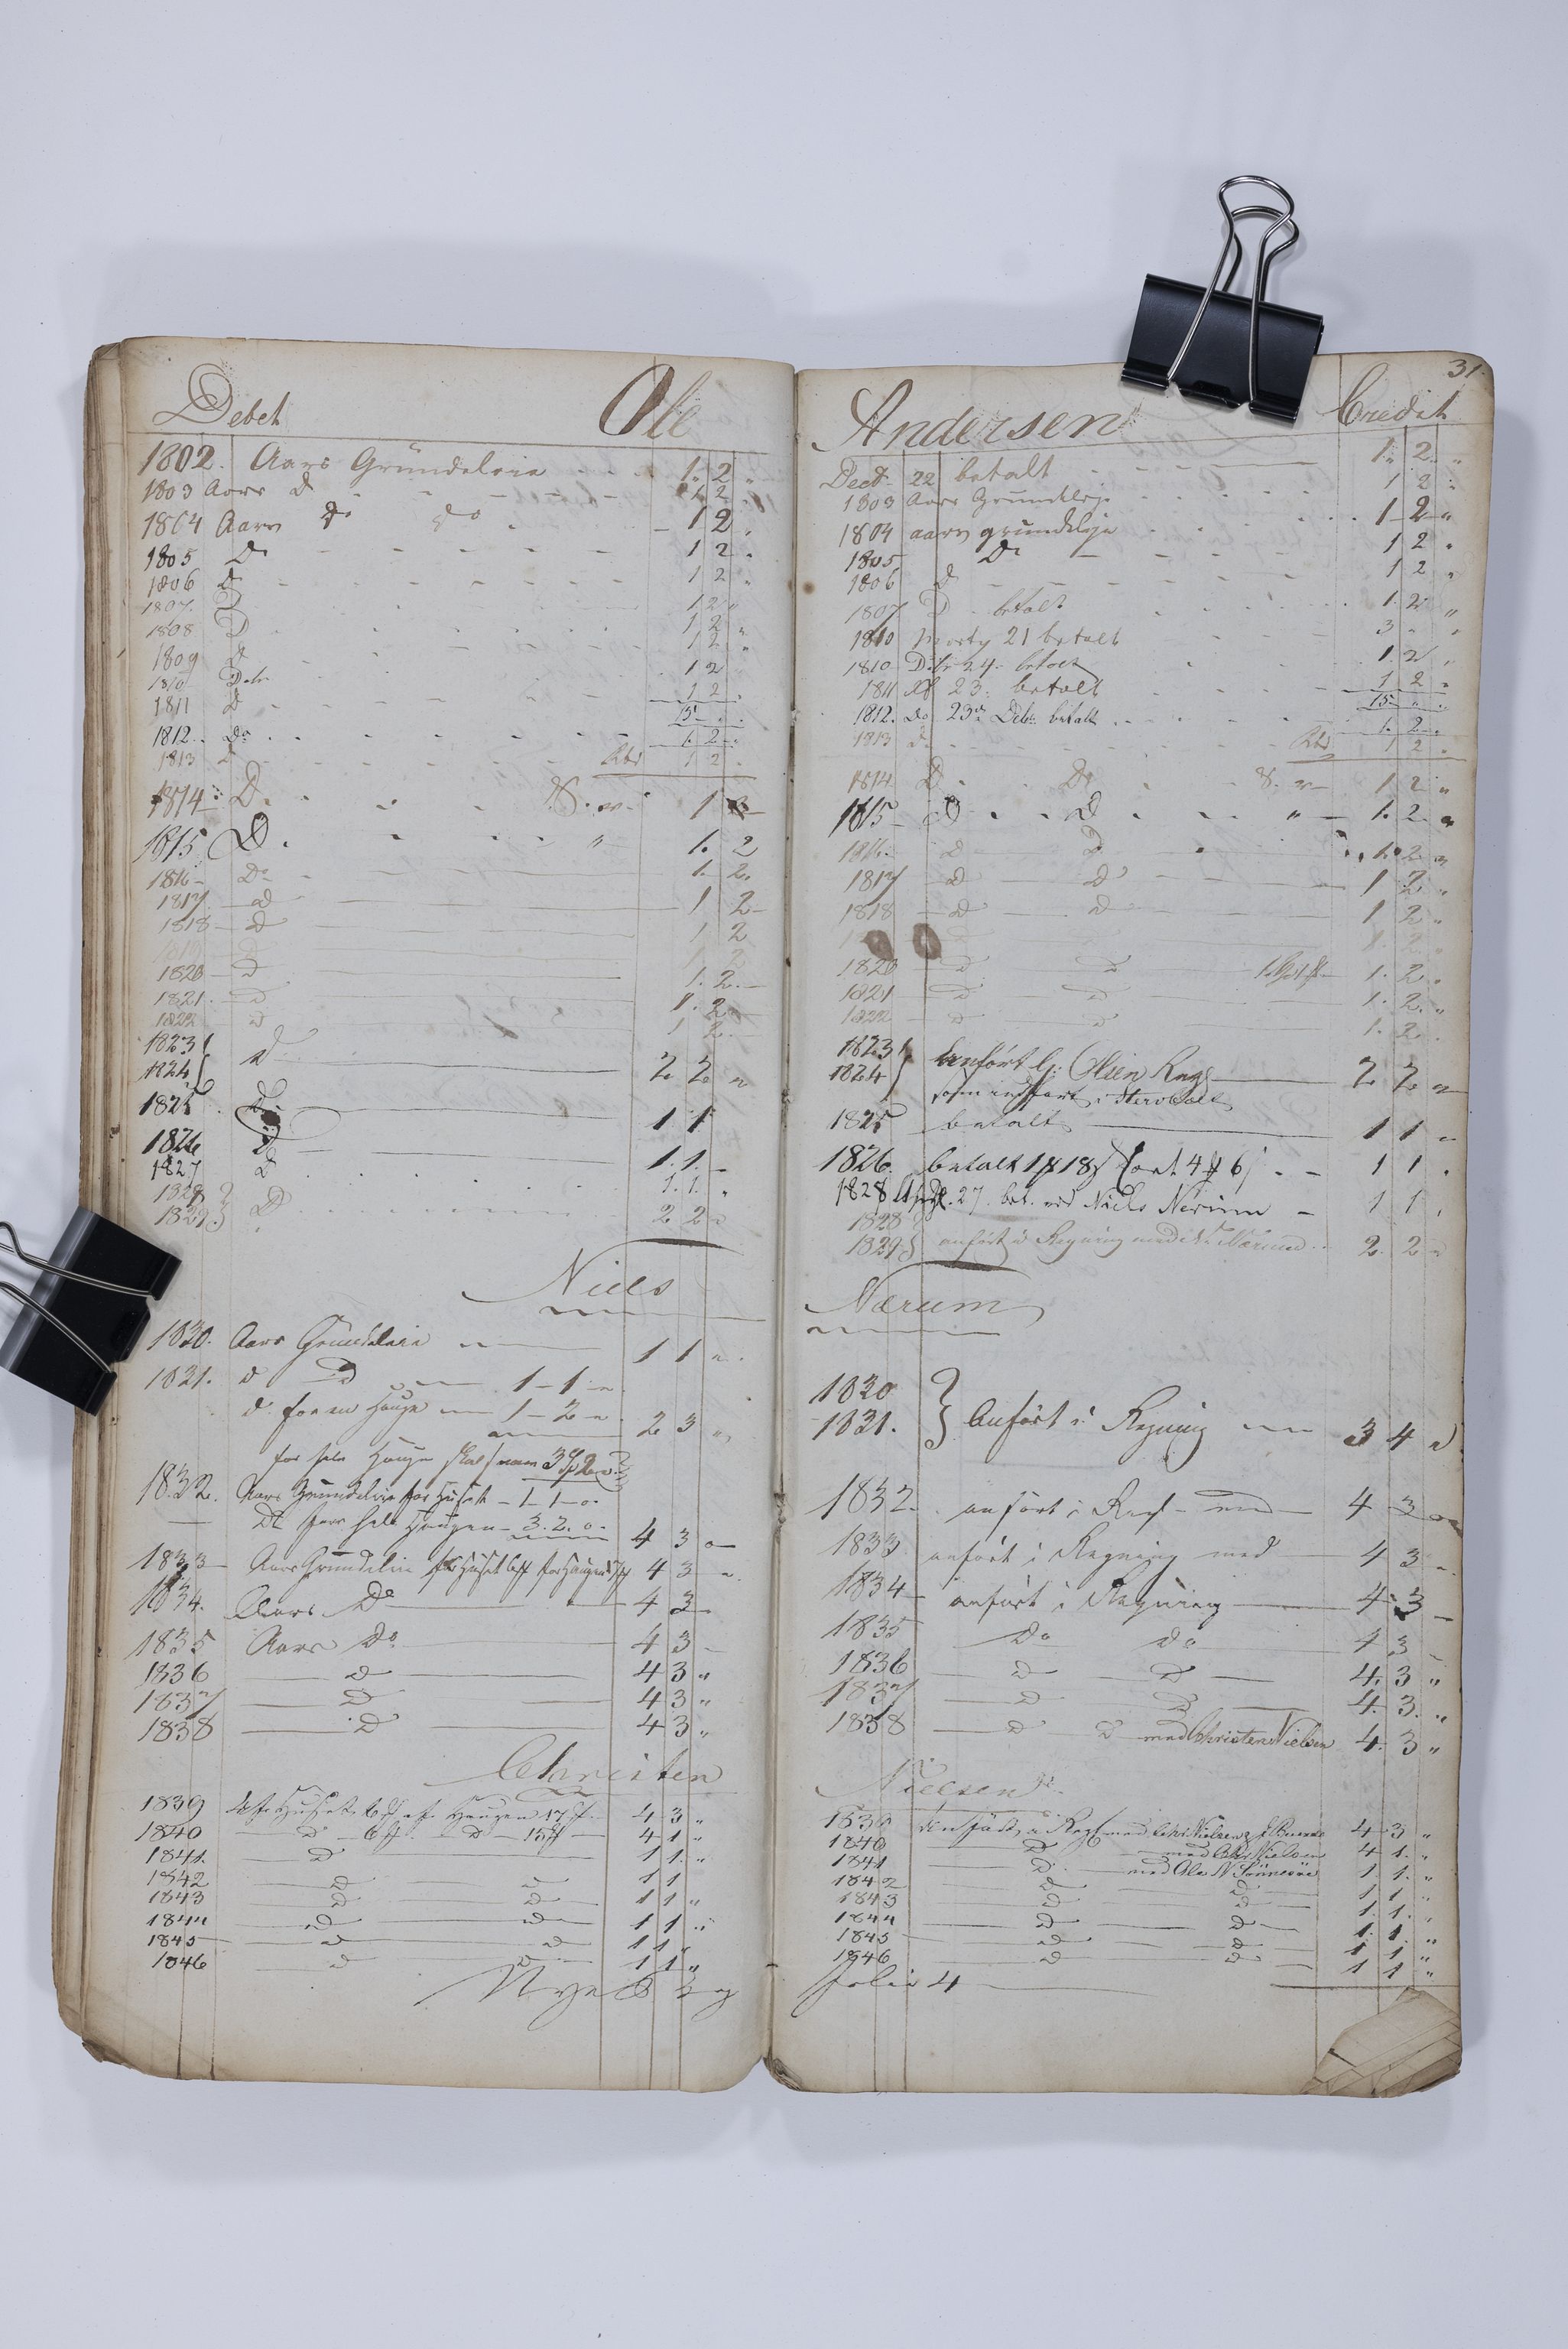 Debet Ole
1802. Aars Grundeleie 1. 2 "
1803 Aars d 1 2 "
1804 Aars do do 1 2 "
1805 Do 1 2 "
1806 D 1 2 "
1807. D 1 2 "
1808 D 1 2 "
1809 d 1 2 "
1810 Debr 1 2
1811 d 1 2 "
15 " "
1812. do 1. 2 "
1813 d Rbd 1 2 "
1814 D. S. v. 1
1815 D. " 1. 2
1816 Do 1. 2.
1817 d 1 2
1818 d 1 2
1 2
1820 d 1. 2.
1821. d 1. 2.
1822 d 1 2.
1823
1824 } d 2 2 "
1825. Do 1 1
1826 D 1. 1. "
1827 d 1. 1. "
1828
1829. } D 2 2 "
Niels
1830. Aars Grundeleie 1 1 "
1831. d D 1 - 1 - "
d. for en Hauge 1 - 2 - " 2 3 "
for hele Haugen skal
1832. Aars Grundeleie for Huset - 1 - 1 - o.
Do for hele Haugen - 3. 2. o. 4 3 o
1833 Aars Grundeleie for Huset 4 3 "
1834. Aars Do 4 3
1835 Aars Do 4 3
1836 D 4 3 "
1837 D 4 3 "
1838 D 4 3 "
Christen
1839 Huset Haugen 4 3 "
1840 D D 4 1 "
1841 D 1 1. "
1842 D D 1 1
1843 D D 1 1 "
1844 D D 1 1 "
1845 D D 1 1 "
1846 D D 1 1 "
Nye
31.
Andersen Credit
Decbr 22 betalt 1. 2. "
1803 Aars Grundleje 1 2 "
1804 aars grundleje 1 2 "
1805 Do 1 2 "
1806 d 1 2 "
1807 D betalt 1. 2 "
1810 21 betalt 3 " "
1810 Debr 24. betalt 1. 2 "
1811 23. betalt 1 2 "
15 " "
1812. do 23de Debr betalt 1. 2 "
1813 do Rbd 1 2 "
1814 D. Do S. v. 1 2 "
1815 D D " 1. 2. "
1816. d D 1. 2. "
1817 d d 1 2 "
1818 d d 1 2 "
1. 2. "
1820 d d 1. 2 "
1821 d d 1. 2. "
1822 d d 1. 2. "
1823
1824 } anført Olsen 2 2 "
som
1825 betalt 1 1 "
1826. betalt 1 1 "
1828 April. 27. bet. ved Niels Nerum 1 1 "
1828
1829 } anført i Regning med Nerum 2. 2 "
Nærum
1830
1831. } Anført i Regning 3 4 "
1832. anført i Reg 4 3 o
1833 anført i Regning med 4 3 "
1834 anført i Regning 4 3
1835 Do Do 4 3
1836 D D 4. 3 "
1837 D D 4. 3. "
1838 D D med Christen Nielsen 4. 3 "
Nielsen
1839 Anført i Regl med Chr: Nielsen 4 3 "
1840 D med Chr Nielsen 4 1. "
1841 D med Ole N 1 1. "
1842 D D 1 1 "
1843 D D 1. 1. "
1844 D D 1. 1. "
1845 D D 1 1 "
1846 D D 1 1 "
folio 4